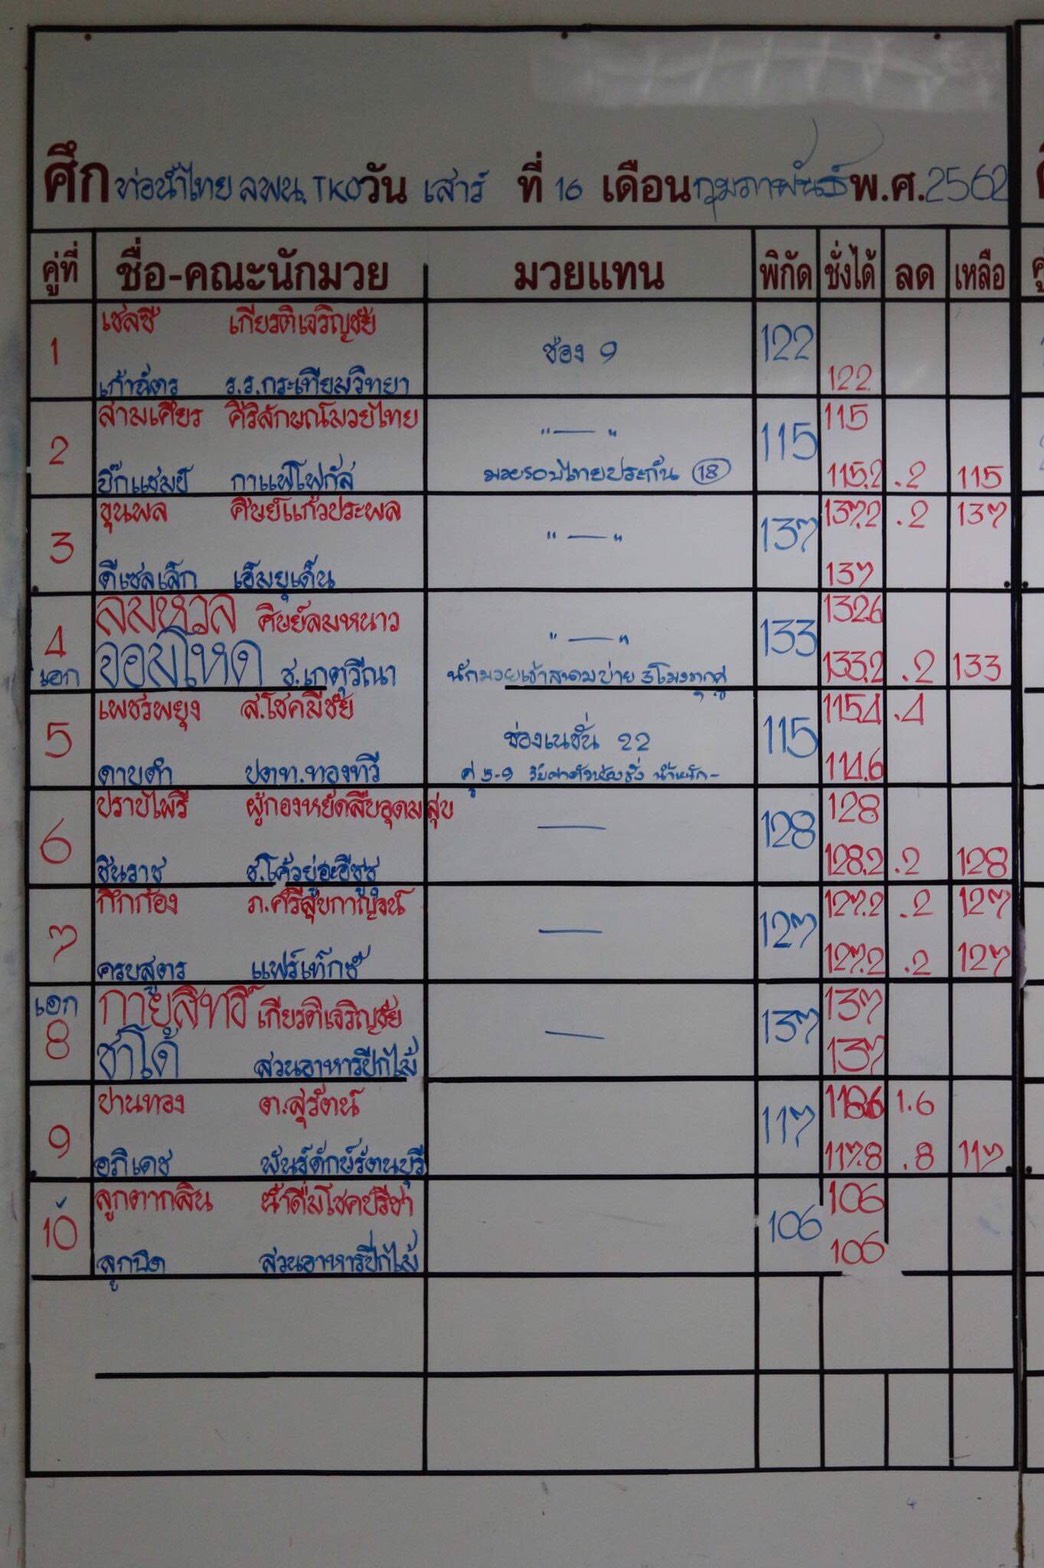 ศึก ท่อน้ำไทย ลุมพินี TKO วัน เสาร์ ที่ 16 เดือน กุมภาพันธ์ พ.ศ. 2562
คู่ที่ ชื่อ-คณะนักมวย มวยแทน พิกัด ชั่งได้ ลด เหลือ
1 เชลซี เกียรติเจริญชัย ช่อง 9 122
เก้าฉัตร ร.ร.กระเทียมวิทยา 122
2 สามเศียร ศิริลักษณ์มวยไทย "—" 115 115
อีกแซมยี กาแฟโฟกัส มวยรอบไทยประกัน (18) 115.2 .2 115
3 ขุนพล ศิษย์แก้วประพล "—" 137 137.2 .2 137
ดีเซลเล็ก เอ็มยูเด็น 137
4 ลมหวล ศิษย์ลมหนาว "—" 133 132.6
เอก จอมโหด ช.เกตุวีณา นักมวยเข้าสนามบ่าย 3 โมงทุกคู่ 133.2 .2 133
5 เพชรพยุง ส.โชคมีชัย ช่องเนชั่น 22 115 115.4 .4
ดาบดำ ปตท.ทองทวี 114.6
6 ปราบไพรี ผู้กองหยัดสืบอุดมสุข — 128 128
ชินราช 128.2 .2 128
7 กึกก้อง ภ.ศรีสุขกาญจน์ — 127 127.2 .2 127
ครบสูตร แฟร์เท็กซ์ 127.2 .2 127
เอก กายสิทธิ์ เกียรติเจริญชัย — 137 137
8 ซ้ำได้ สวนอาหารปีกไม้ 137
9 ปานทอง ต.สุรัตน์ 117 118.6 1.6
อภิเดช พันธ์ุศักดิ์รัตนบุรี 117.8 .8 117
10 ลูกตากสิน น้ำดื่มโชคปรีชา 106 106
ลูกปิด สวนอาหารปีกไม้ 106